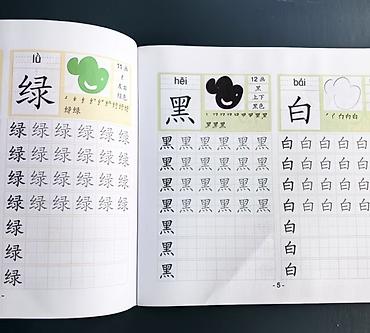 lǜ
绿
11画
纟
左右
绿色
绿绿
绿 绿 绿 绿 绿 绿
绿 绿 绿 绿 绿 绿
绿 绿 绿 绿 绿 绿
绿 绿 绿 绿 绿 绿
绿
绿
绿
hēi
黑
12画
黑
上下
黑色
黑 黑 黑 黑 黑 黑
黑 黑 黑 黑 黑 黑
黑 黑 黑 黑 黑 黑
黑 黑 黑 黑 黑 黑
黑
黑
黑
bái
白
白 白 白 白 白
白 白 白 白 白
白 白 白 白 白
白 白 白 白 白
白
白
白
- 5 -